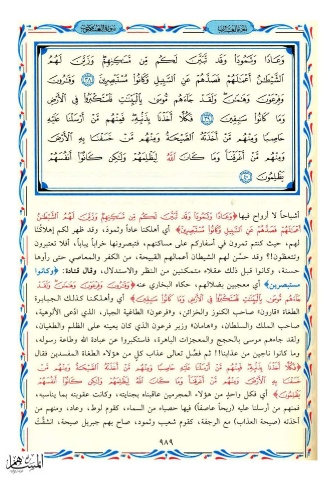 وَعَادًا وَثَمُودَا۟ وَقَد تَّبَيَّنَ لَكُم مِّن مَّسَٰكِنِهِمْ وَزَيَّنَ لَهُمُ
ٱلشَّيْطَٰنُ أَعْمَٰلَهُمْ فَصَدَّهُمْ عَنِ ٱلسَّبِيلِ وَكَانُوا۟ مُسْتَبْصِرِينَ ٣٨ وَقَٰرُونَ
وَفِرْعَوْنَ وَهَٰمَٰنَ وَلَقَدْ جَآءَهُم مُّوسَىٰ بِٱلْبَيِّنَٰتِ فَٱسْتَكْبَرُوا۟ فِى ٱلْأَرْضِ
وَمَا كَانُوا۟ سَٰبِقِينَ ٣٩ فَكُلًّا أَخَذْنَا بِذَنۢبِهِۦ فَمِنْهُم مَّنْ أَرْسَلْنَا عَلَيْهِ
حَاصِبًا وَمِنْهُم مَّنْ أَخَذَتْهُ ٱلصَّيْحَةُ وَمِنْهُم مَّنْ خَسَفْنَا بِهِ ٱلْأَرْضَ
وَمِنْهُم مَّنْ أَغْرَقْنَا وَمَا كَانَ ٱللَّهُ لِيَظْلِمَهُمْ وَلَٰكِن كَانُوٓا۟ أَنفُسَهُمْ
يَظْلِمُونَ
أشباحاً لا أرواح فيها ﴿وَعَادًا وَثَمُودَا۟ وَقَد تَّبَيَّنَ لَكُم مِّن مَّسَٰكِنِهِمْ وَزَيَّنَ لَهُمُ ٱلشَّيْطَٰنُ
أَعْمَٰلَهُمْ فَصَدَّهُمْ عَنِ ٱلسَّبِيلِ وَكَانُوا۟ مُسْتَبْصِرِينَ﴾ أي أهلكنا عاداً وثمود، وقد ظهر لكم إهلاكنا
لهم، حيث كنتم تمرون في أسفاركم على مساكنهم، فتبصرونها خراباً يباباً، أفلا تعتبرون
وتتعظون؟! وقد حسَّن لهم الشيطان أعمالهم القبيحة، من الكفر والمعاصي حتى رأوها
حسنة، وكانوا قبل ذلك عقلاء متمكنين من النظر والاستدلال، وقال قتادة: ﴿وكانوا
مستبصرين﴾ أي معجبين بضلالهم، حكاه البخاري عنه ﴿وَقَٰرُونَ وَفِرْعَوْنَ وَهَٰمَٰنَ وَلَقَدْ
جَآءَهُم مُّوسَىٰ بِٱلْبَيِّنَٰتِ فَٱسْتَكْبَرُوا۟ فِى ٱلْأَرْضِ وَمَا كَانُوا۟ سَٰبِقِينَ﴾ أي وأهلكنا كذلك الجبابرة
الطغاة «قارون» صاحب الكنوز والخزائن، و«فرعون» الطاغية الجبار، الذي ادَّعى الألوهية،
صاحب الملك والسلطان، و«هامان» وزير فرعون الذي كان يعينه على الظلم والطغيان،
ولقد جاءهم موسى بالحجج والمعجزات الباهرة، فاستكبروا عن عبادة الله وطاعة رسوله،
وما كانوا ناجين من عذابنا!! ثم فصَّل تعالى عذاب كلٍ من هؤلاء الطغاة المفسدين فقال
﴿فَكُلًّا أَخَذْنَا بِذَنۢبِهِۦ فَمِنْهُم مَّنْ أَرْسَلْنَا عَلَيْهِ حَاصِبًا وَمِنْهُم مَّنْ أَخَذَتْهُ ٱلصَّيْحَةُ وَمِنْهُم مَّنْ
خَسَفْنَا بِهِ ٱلْأَرْضَ وَمِنْهُم مَّنْ أَغْرَقْنَا وَمَا كَانَ ٱللَّهُ لِيَظْلِمَهُمْ وَلَٰكِن كَانُوٓا۟ أَنفُسَهُمْ
يَظْلِمُونَ﴾ أي فكل واحدٍ من هؤلاء المجرمين عاقبناه بجنايته، وكانت عقوبته بما يناسبه،
فمنهم من أرسلنا عليه (ريحاً عاصفاً) فيها حصباء من السماء، كقوم لوط، وعاد، ومنهم من
أخذته (صيحة العذاب) مع الرجفة، كقوم شعيب وثمود، صاح بهم جبريل صيحة، انشقَّت
٩٨٩